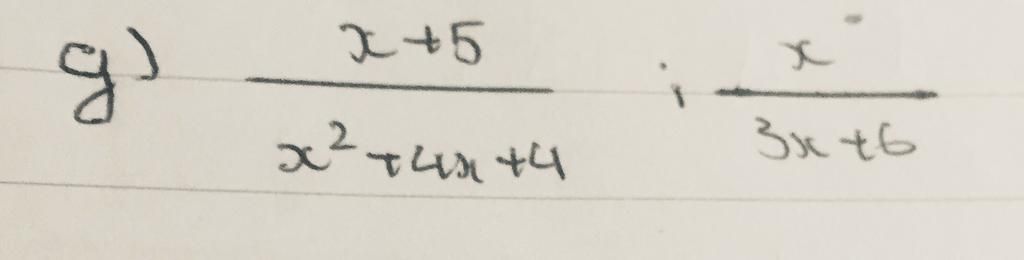 g) x+5 / x²+4x+4 ; x / 3x+6